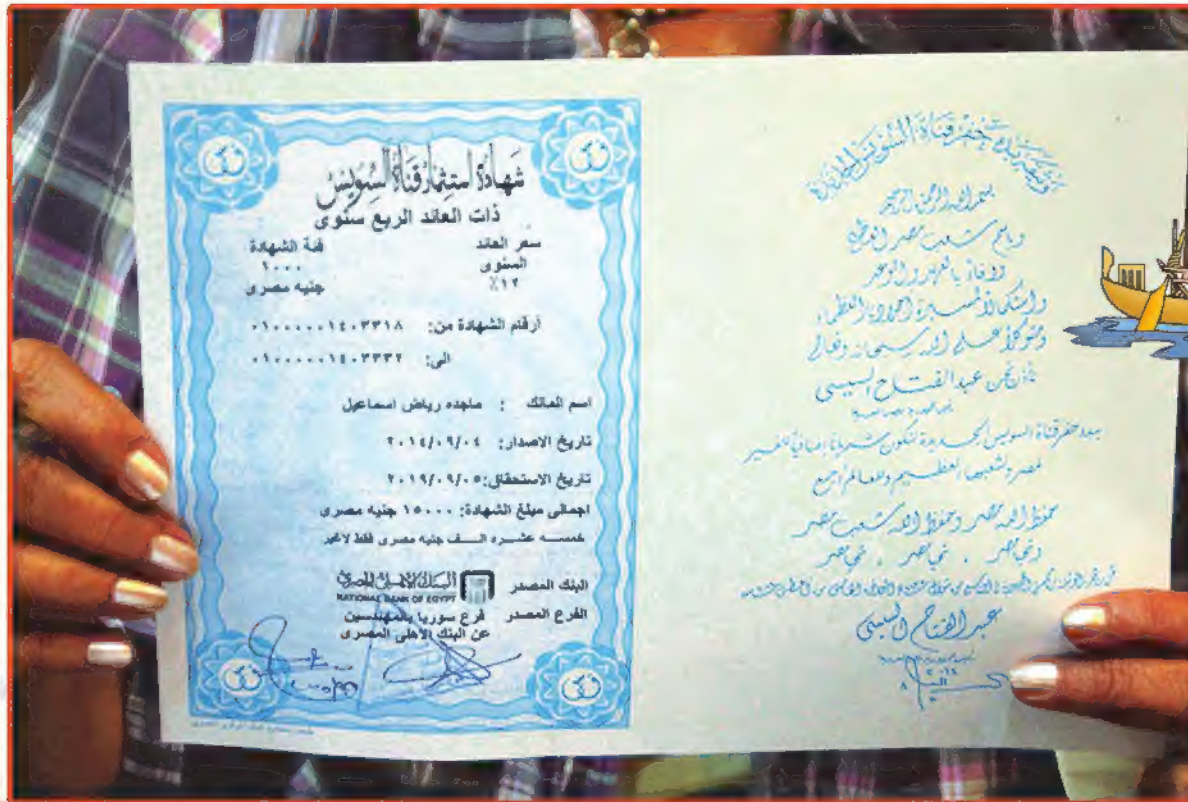 شهادة استثمار قناة السويس
ذات العائد الربع سنوى
سعر العائد
السنوى
١٢٪
فئة الشهادة
١٠٠٠
جنيه مصرى
أرقام الشهادة من: ٠١٠٠٠٠٠٠١٤٠٣٣١٨
الى: ٠١٠٠٠٠٠٠١٤٠٣٣٣٢
اسم المالك : ماجده رياض اسماعيل
تاريخ الاصدار: ٢٠١٤/٠٩/٠٤
تاريخ الاستحقاق: ٢٠١٩/٠٩/٠٥
اجمالى مبلغ الشهادة: ١٥٠٠٠ جنيه مصرى
خمسة عشره الف جنيه مصرى فقط لاغير
البنك المصدر البنك الأهلى المصرى
NATIONAL BANK OF EGYPT
الفرع المصدر فرع سوريا بالمهندسين
عن البنك الأهلى المصرى
وثيقة بدء حفر قناة السويس الجديدة
بسم الله الرحمن الرحيم
وباسم شعب مصر العظيم
وتوكلاً على الله سبحانه وتعالى
نأذن نحن عبد الفتاح السيسى
ببدء حفر قناة السويس الجديدة لتكون شرياناً إضافياً للخير
لمصر ولشعبها العظيم وللعالم أجمع
حفظ الله مصر وحفظ الله شعب مصر
وتحيا مصر . تحيا مصر . تحيا مصر
عبد الفتاح السيسى